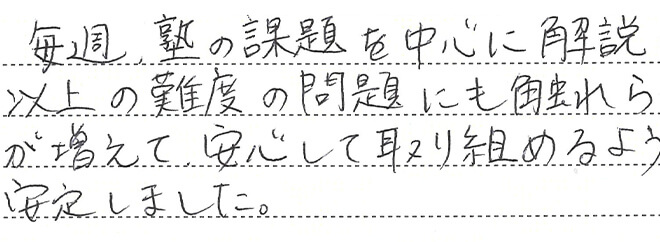 毎週、塾の課題を中心に解説
以上の難度の問題にも触れら
が増えて、安心して取り組めるよう
安定しました。